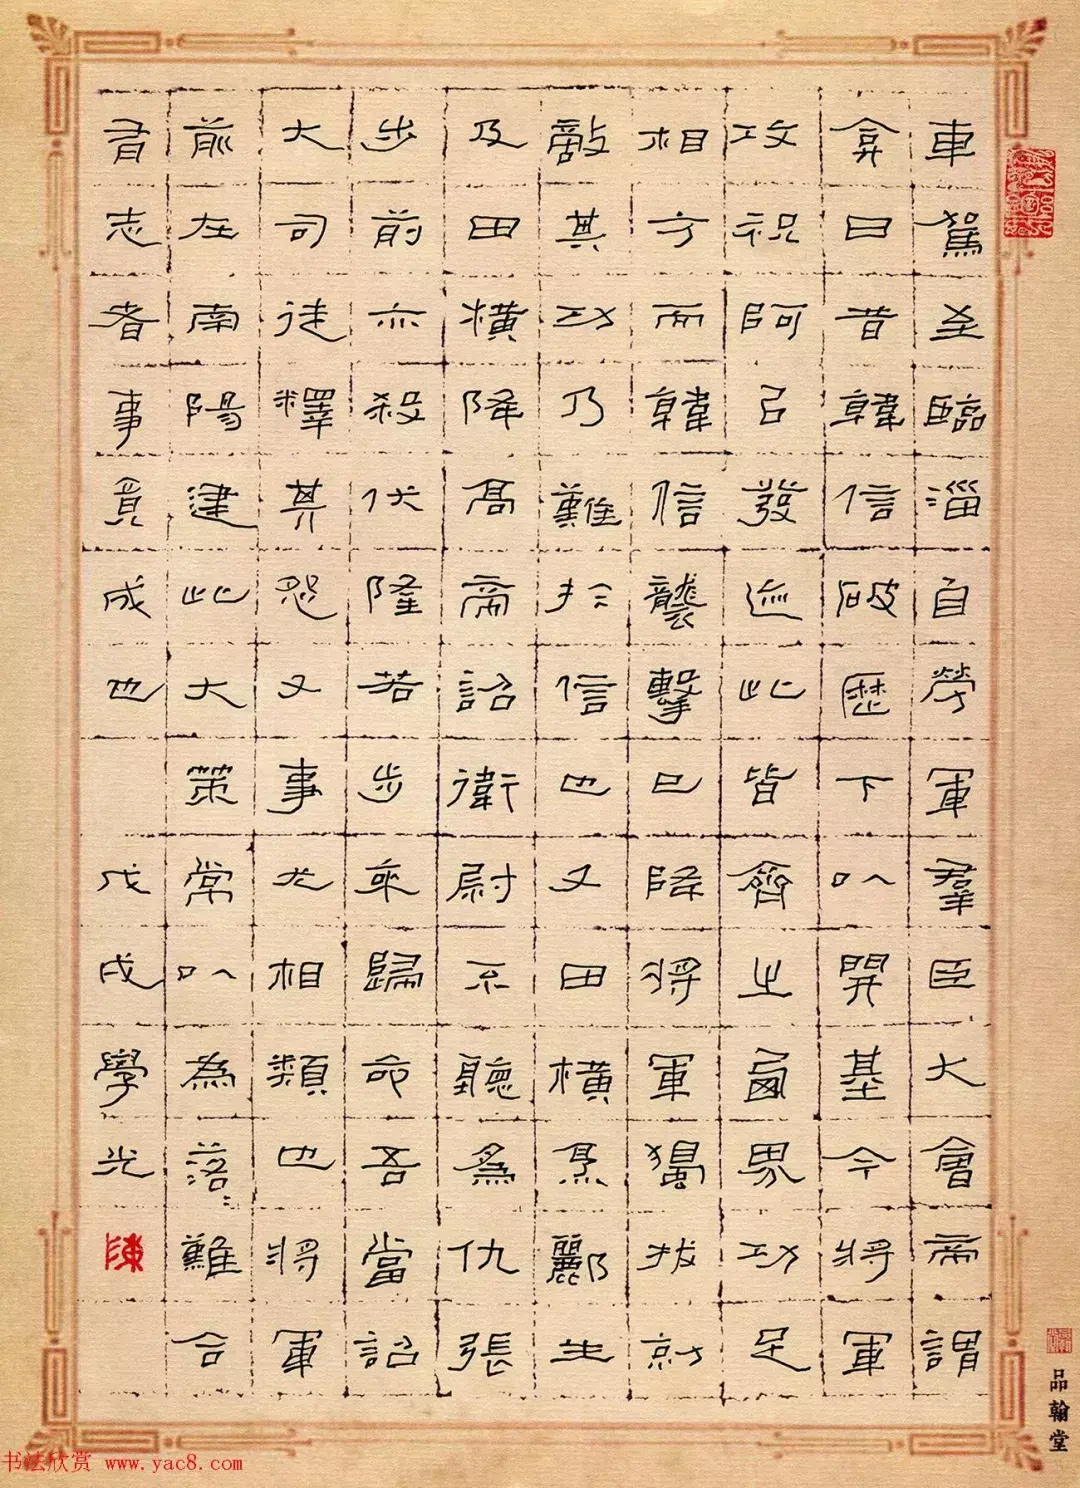 車駕至臨淄自勞軍羣臣大會帝謂
弇曰昔韓信破歷下以開基今將軍
攻祝阿以發迹此皆齊之西界功足
相方而韓信襲擊已降將軍獨拔勍
敵其功乃難於信也又田橫烹酈生
及田橫降高帝詔衛尉不聽為仇張
步前亦殺伏隆若步來歸命吾當詔
大司徒釋其怨又事尤相類也將軍
前在南陽建此大策常以為落落難合
有志者事竟成也
戊戌學光
陳
品翰堂
书法欣赏 www.yac8.com